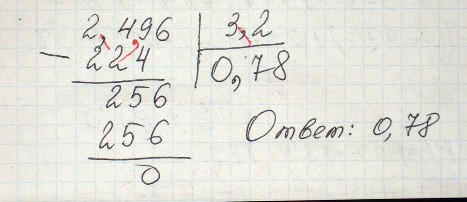 2,496 | 3,2
− 224 | 0,78
256
256
0
Ответ: 0,78